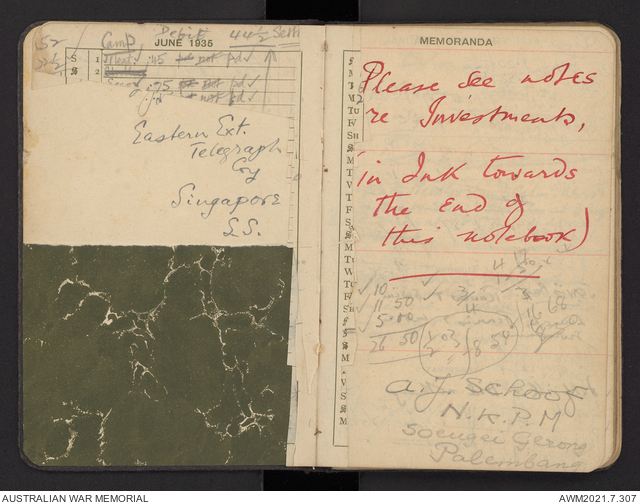 52 Camp Debit 44½ Sett
2½ JUNE 1935
S 1 Meat .45 not pd ✓
S 2
.75 not pd ✓
not pd ✓
Eastern Ext.
Telegraph
Coy
Singapore
S.S.
MEMORANDA
Please see notes
re Investments,
(in Ink towards
the end of
this notebook)
✓ 10
11.50
✓ 5.00
26 50
A.J. Schoof
N.K.P.M
Soeugei Gerong
Palembang
AUSTRALIAN WAR MEMORIAL
AWM2021.7.307